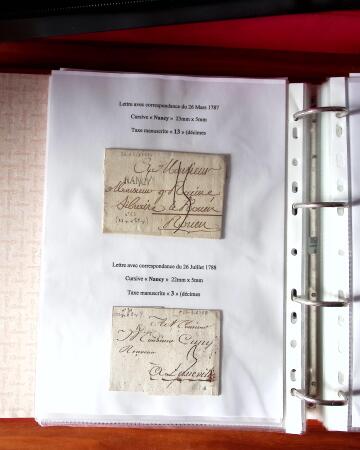 Lettre avec correspondance du 26 Mars 1787
Cursive « Nancy » 23mm x 5mm
Taxe manuscrite « 13 » (décimes
A Monsieur
NANCY
Monsieur
Libraire à Rouen
Rouen
Lettre avec correspondance du 26 Juillet 1788
Cursive « Nancy » 22mm x 5mm
Taxe manuscrite « 3 » (décimes
A Monsieur
Monsieur
A Luneville